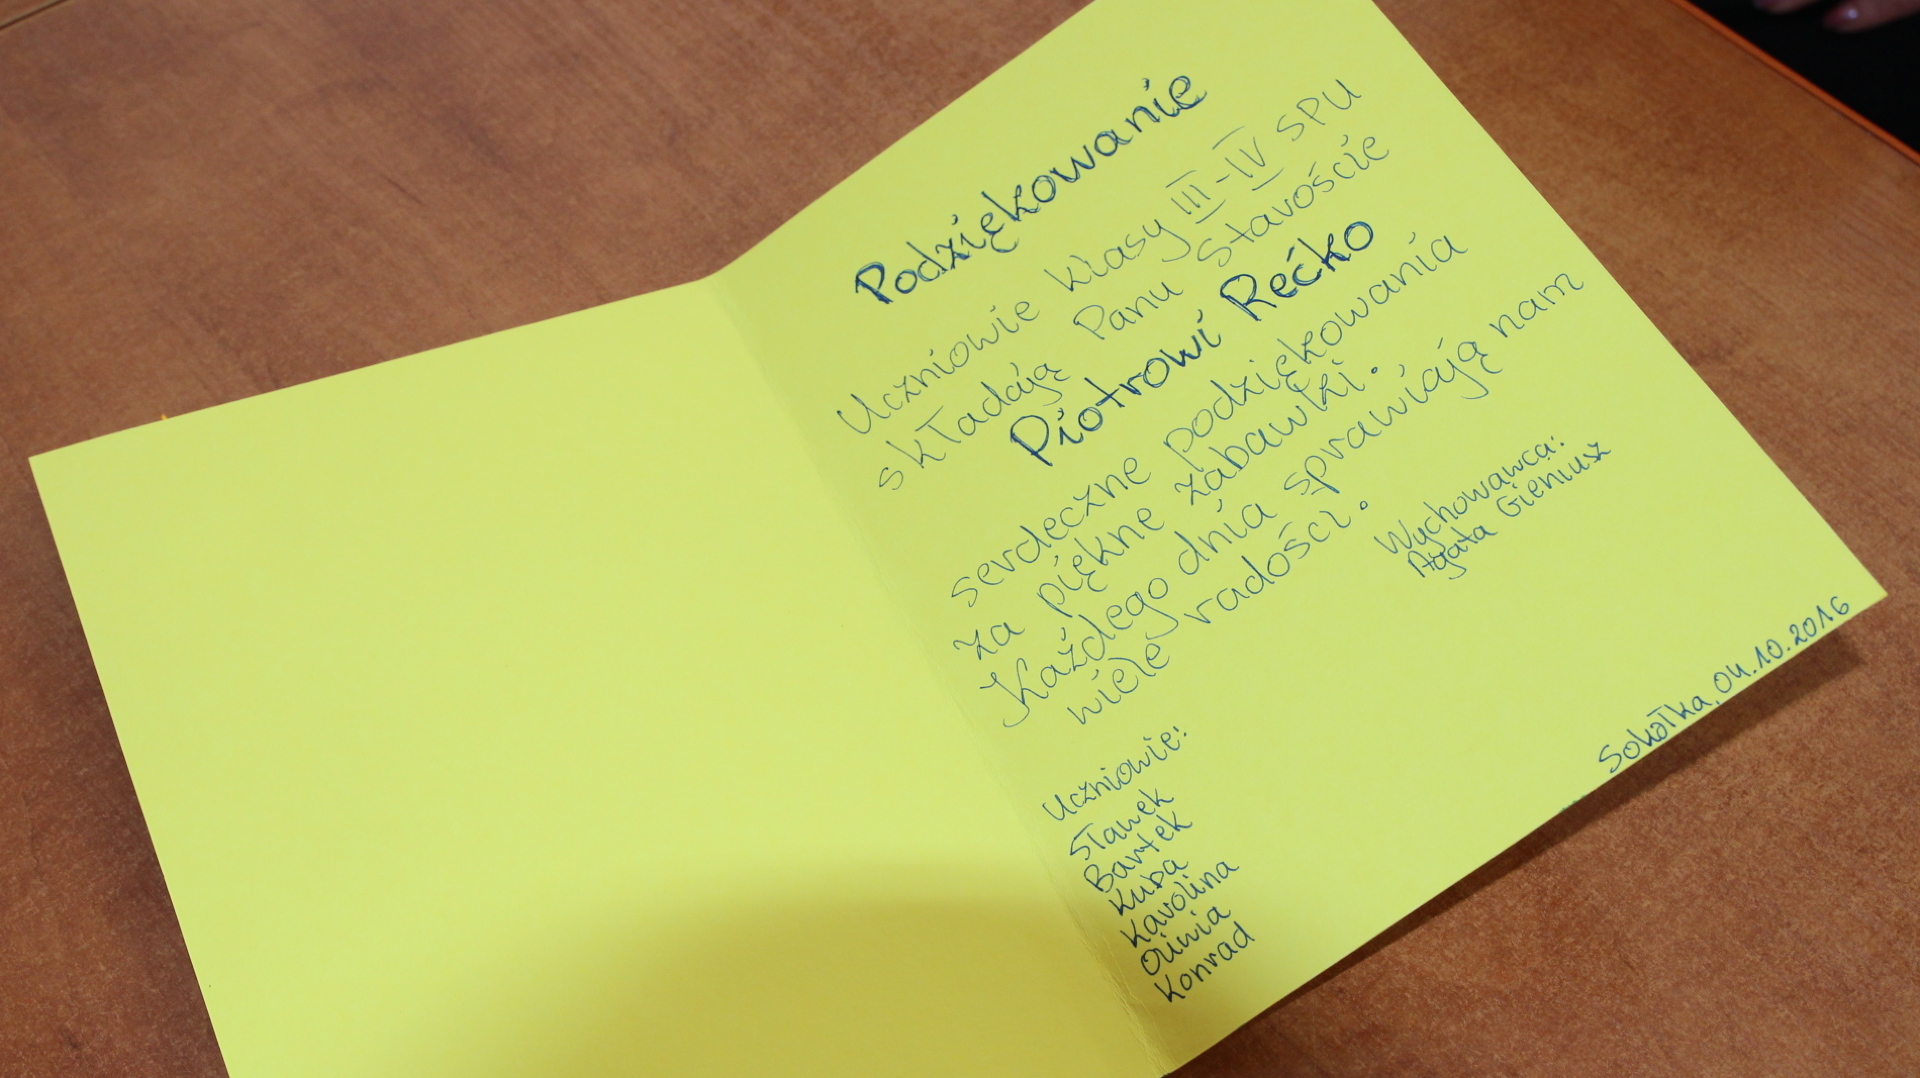 Podziękowanie
Uczniowie klasy III-IV SPU
składają Panu Staroście
Piotrowi Rećko
serdeczne podziękowania
za piękne zabawki.
Każdego dnia sprawiają nam
wiele radości.
Wychowawca:
Agata Gieniusz
Uczniowie:
Sławek
Bartek
Kuba
Karolina
Oliwia
Konrad
Sokółka, 04.10.2016